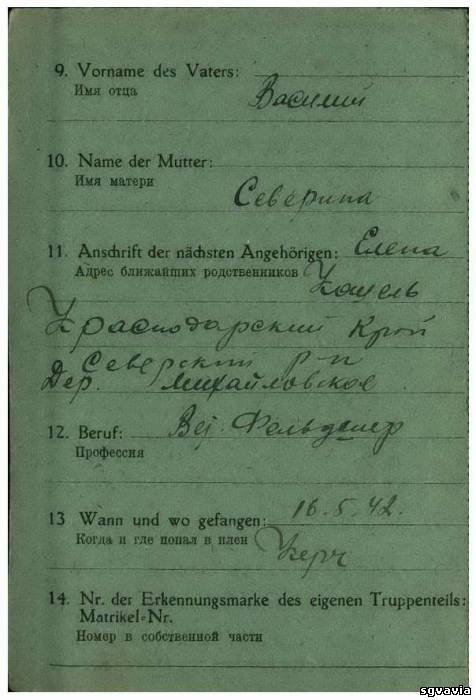 9. Vorname des Vaters:
Имя отца
Василий
10. Name der Mutter:
Имя матери
Северина
11. Anschrift der nächsten Angehörigen: Елена
Адрес ближайших родственников Кошель
Краснодарский Край
Северский р-н
Дер. Михайловское
12. Beruf: Вет. Фельдшер
Профессия
13 Wann und wo gefangen: 16.5.42.
Когда и где попал в плен Керч
14. Nr. der Erkennungsmarke des eigenen Truppenteils:
Matrikel-Nr.
Номер в собственной части
sgvavia